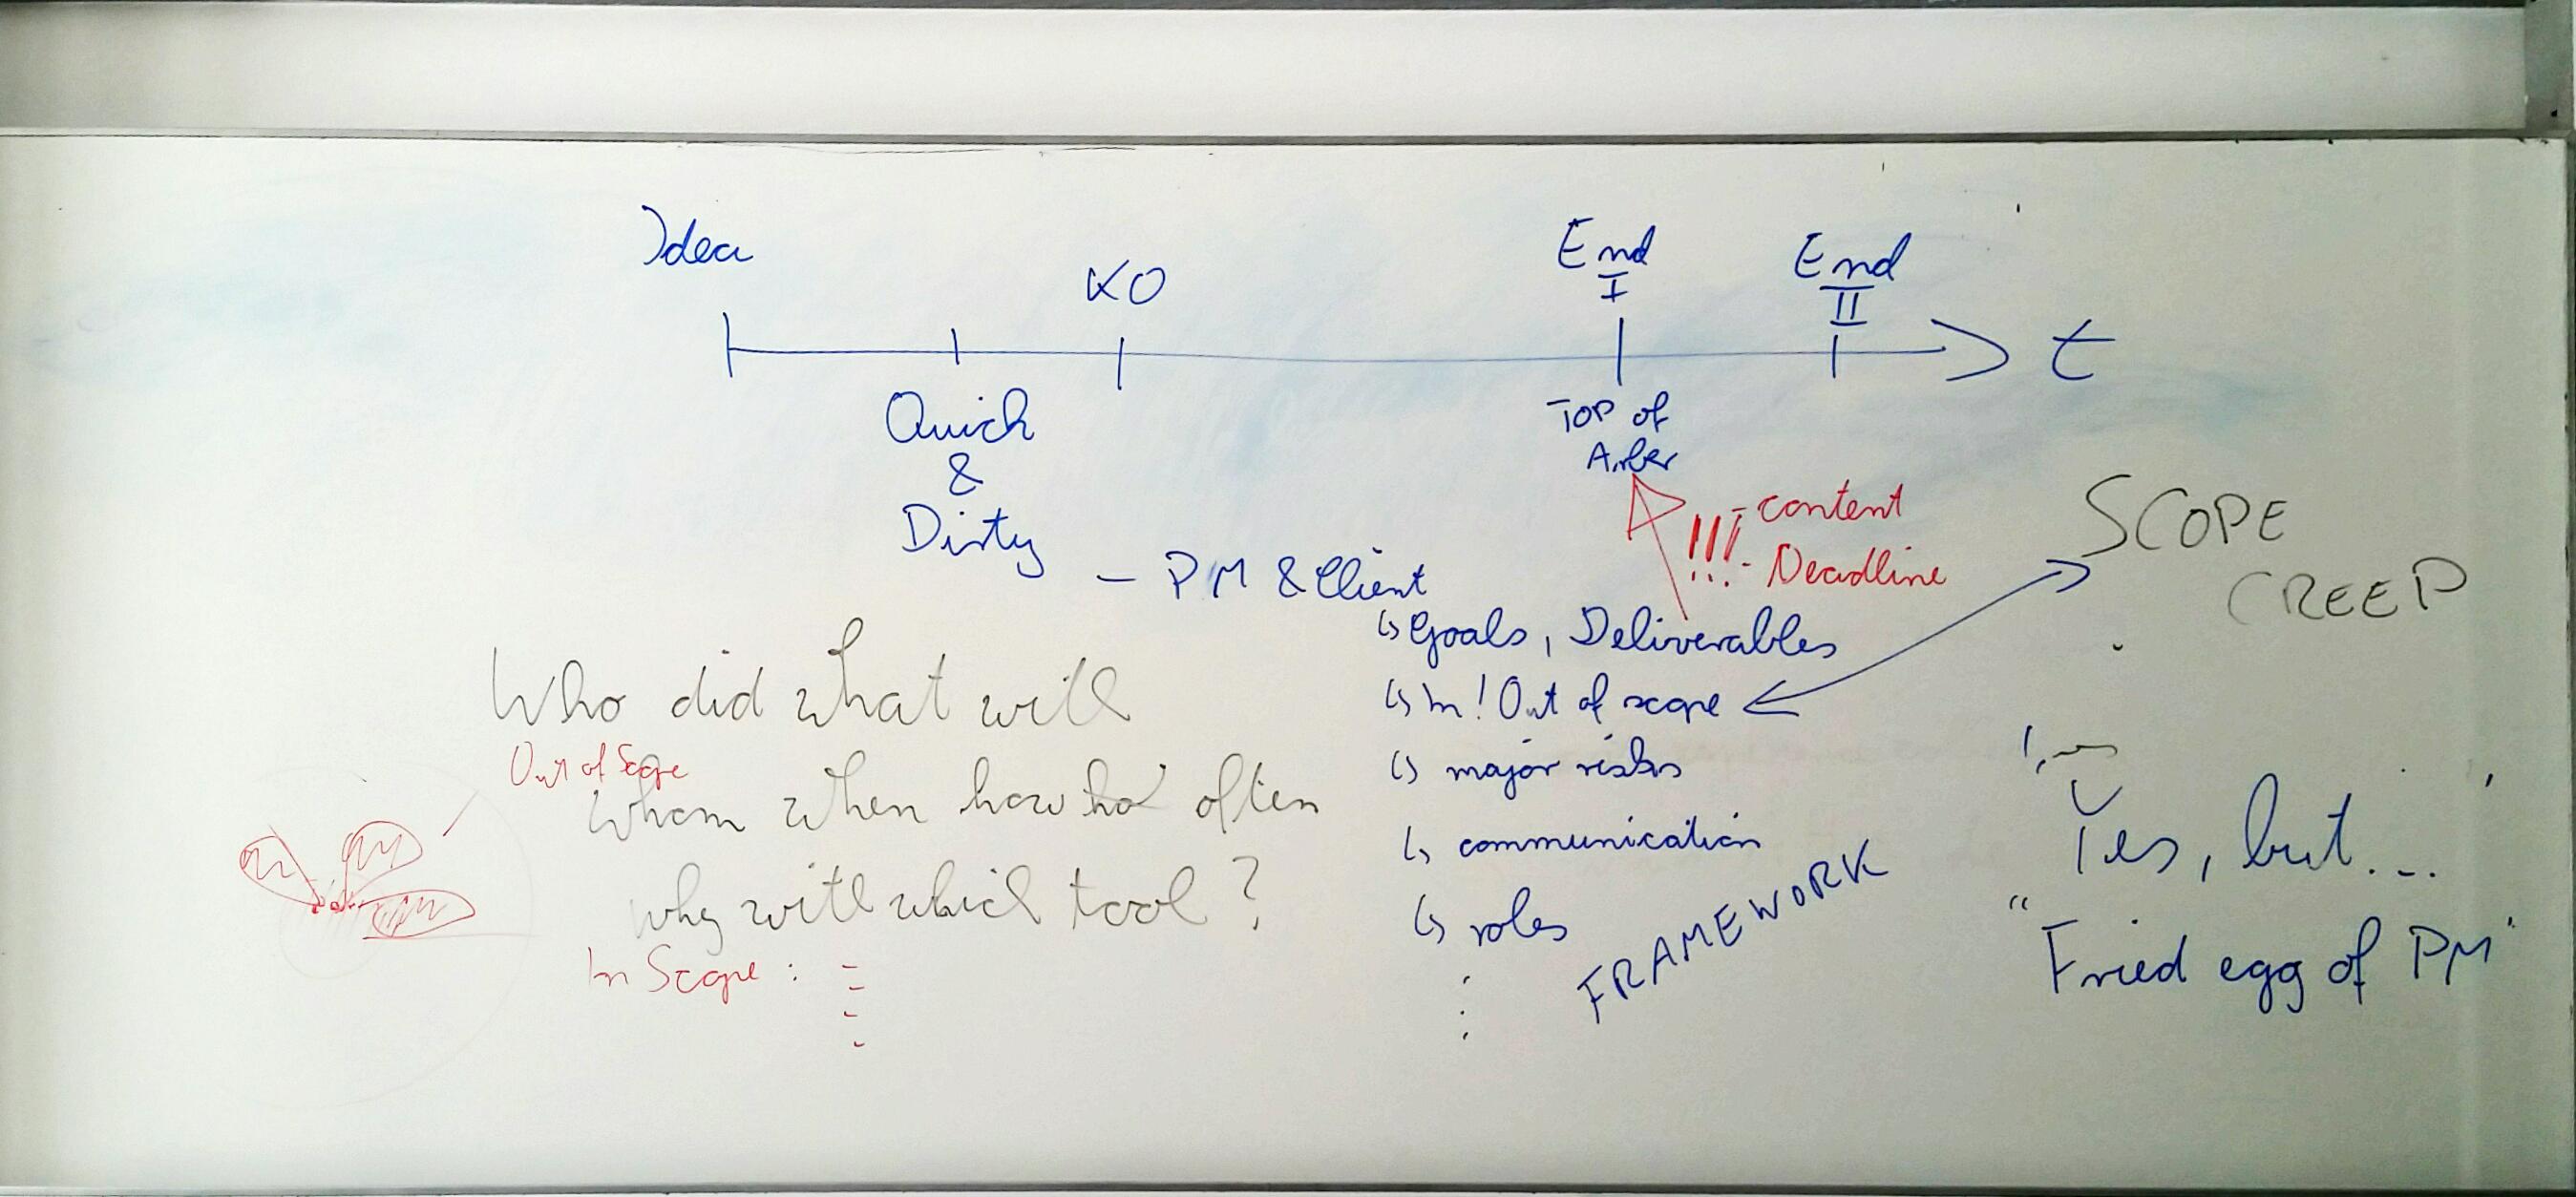 Idea
KO
End
I
End
II
t
Quick
&
Dirty
TOP of
Arber
!!! - content
- Deadline
SCOPE
CREEP
- PM & Client
↳ Goals, Deliverables
↳ In! Out of scope
↳ major risks
↳ communication
↳ roles
FRAMEWORK
Who did what with
Out of Scope
Whom when how often
why with which tool?
In Scope :
Yes, but...
"Fried egg of PM"